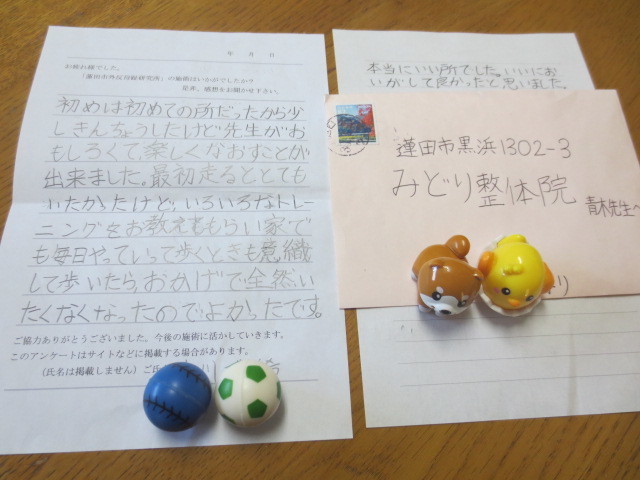 年 月 日
お疲れ様でした。
「蓮田市外反母趾研究所」の施術はいかがでしたか?
是非、感想をお聞かせ下さい。
初めは初めての所だったから少
しきんちょうしたけど先生がお
もしろくて、楽しくなおすことが
出来ました。最初走るととても
いたかったけど、いろいろなトレー
ニングをお教えももらい家で
も毎日やっていって歩くときも意織
して歩いたら、おかげで全然い
たくなくなったのでよかったです。
ご協力ありがとうございました。今後の施術に活かしていきます。
このアンケートはサイトなどに掲載する場合があります。
(氏名は掲載しません)ご氏
本当にいい所でした。いいにお
いがして良かったと思いました。
蓮田市黒浜1302-3
みどり整体院
青木先生へ